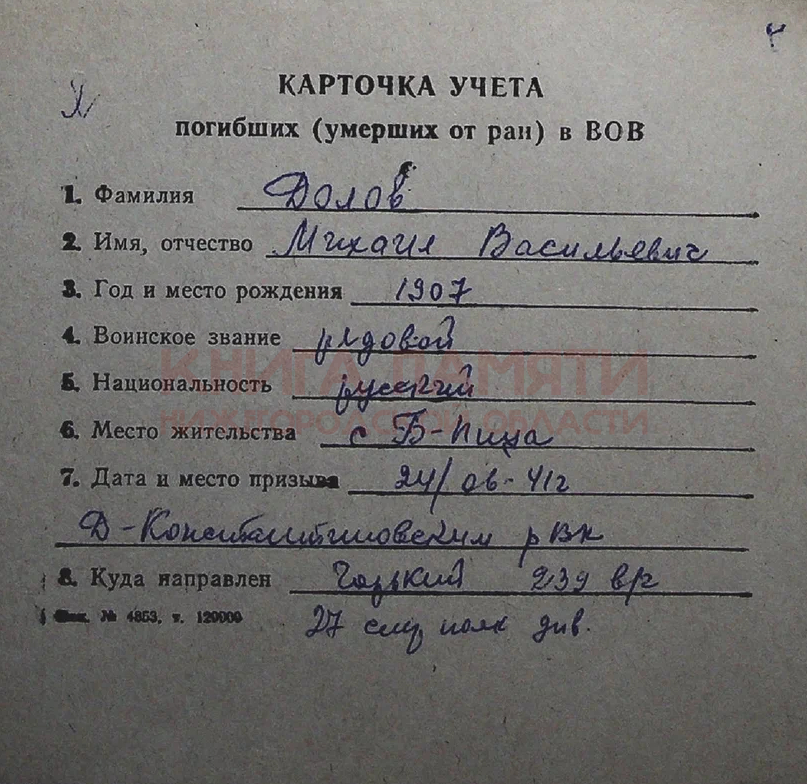 КАРТОЧКА УЧЕТА
погибших (умерших от ран) в ВОВ
1. Фамилия Долов
2. Имя, отчество Михаил Васильевич
3. Год и место рождения 1907
4. Воинское звание рядовой
КНИГА ПАМЯТИ
5. Национальность русский
НИЖЕГОРОДСКОЙ ОБЛАСТИ
6. Место жительства с Б-Пица
7. Дата и место призыва 24/08-41г
Д-Константиновским рВк
8. Куда направлен Горький 239
№ 4853, т. 120000
27 полк див.